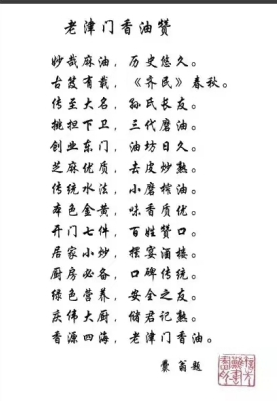 老津门香油赞
妙哉麻油，历史悠久。
古笈有载，《齐民》春秋。
传至大名，孙氏长友。
挑担下卫，三代磨油。
创业东门，油坊日久。
芝麻优质，去皮炒熟。
传统水法，小磨榨油。
本色金黄，味香质优。
开门七件，百姓赞口。
居家小炒，摆宴酒楼。
厨房必备，口碑传统。
绿色营养，安全之友。
庆伟大厨，储君记熟。
香源四海，老津门香油。
翁题